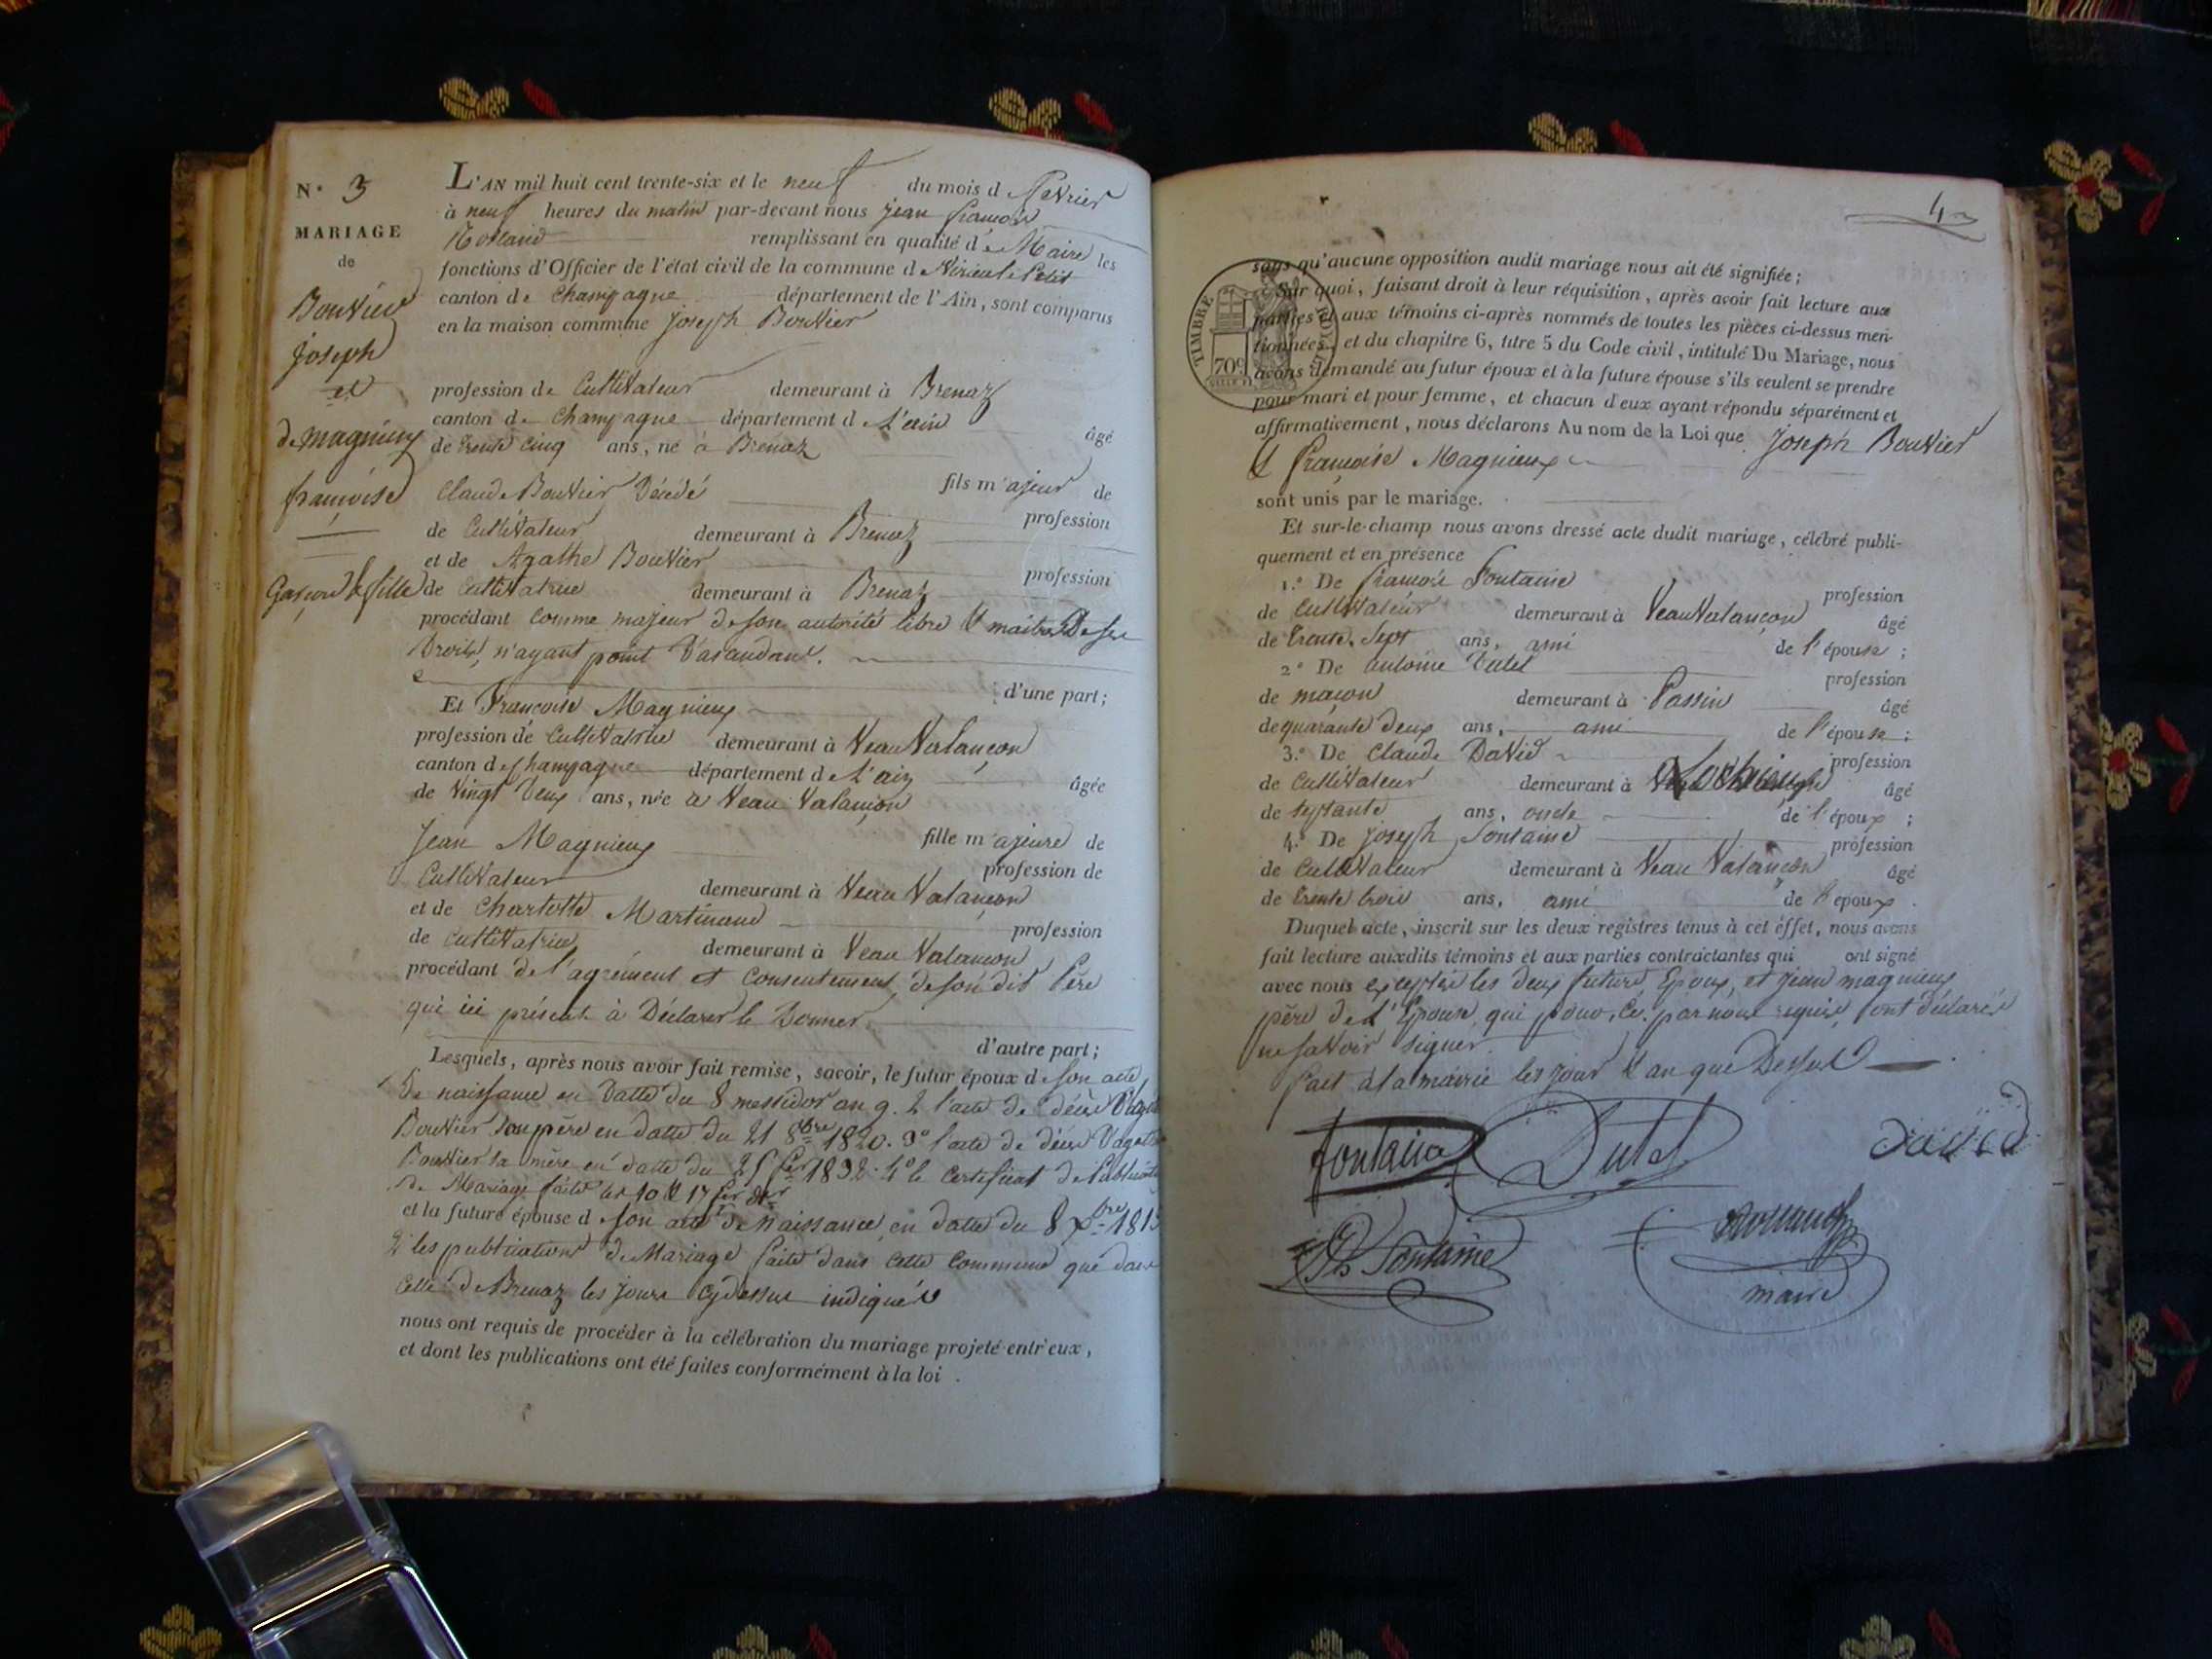 N.° 3
MARIAGE
de
Bouvier
Joseph
et
de magnieux
françoise
Garçon & fille
L'AN mil huit cent trente-six et le neuf du mois d fevrier
à neuf heures du matin par-devant nous jean françois
Rolland remplissant en qualité de Maire les
fonctions d'Officier de l'état civil de la commune d Virieu le Petit
canton de Champagne département de l'Ain, sont comparus
en la maison commune joseph Bouvier
profession de Cultivateur demeurant à Brenaz
canton de Champagne département d L'ain âgé
de trente cinq ans, né à Brenaz
fils majeur de
Claude Bouvier Décédé profession
de Cultivateur demeurant à Brenaz
et de Agathe Bouvier profession
de Cultivatrice demeurant à Brenaz
procédant Comme majeur de son autorité libre & maitre De ses
Droits, n'ayant point D'asandans.
d'une part;
Et Françoise Magnieux
profession de Cultivatrice demeurant à Veau Valançon
canton de Champagne département de L'ain âgée
de Vingt Deux ans, née à Veau Valançon
fille majeure de
Jean Magnieux profession de
Cultivateur demeurant à Veau Valançon
et de Charlotte Martinand profession
de Cultivatrice demeurant à Veau Valançon
procédant de l'agrément et Consentement de son dit Père
qui ici présent à Déclarer le Donner
d'autre part;
Lesquels, après nous avoir fait remise, savoir, le futur époux de son acte
De naissance en Datte du 8 messidor an 9. 2 l'acte de décès
Bouvier son père en datte du 21 8bre 1820. 3° l'acte de décès D'agathe
Bouvier sa mère en datte du 25 1832. 4° le Certificat de Publication
De Mariage faites les 10 & 17
et la future épouse d son acte de Naissance, en datte du 8 bre 1813
2 les publications de Mariage faite dans cette Commune que dans
Celle de Brenaz les jours Cydessus indiqués
nous ont requis de procéder à la célébration du mariage projeté entr'eux,
et dont les publications ont été faites conformément à la loi.
4
TIMBRE ROYAL
70c
sans qu'aucune opposition audit mariage nous ait été signifiée;
Sur quoi, faisant droit à leur réquisition, après avoir fait lecture aux
parties et aux témoins ci-après nommés de toutes les pièces ci-dessus men-
tionnées, et du chapitre 6, titre 5 du Code civil, intitulé Du Mariage, nous
avons demandé au futur époux et à la future épouse s'ils veulent se prendre
pour mari et pour femme, et chacun d'eux ayant répondu séparément et
affirmativement, nous déclarons Au nom de la Loi que Joseph Bouvier
& Françoise Magnieux
sont unis par le mariage.
Et sur-le-champ nous avons dressé acte dudit mariage, célébré publi-
quement et en présence
1.° De François Fontaine profession
de Cultivateur demeurant à Veau Valançon âgé
de trente Sept ans, ami de l'épouse;
2.° De antoine Dutel profession
de maçon demeurant à Passin âgé
de quarante deux ans, ami de l'épouse;
3.° De Claude David profession
de Cultivateur demeurant à Lochieux âgé
de septante ans, oncle de l'époux;
4.° De joseph fontaine profession
de Cultivateur demeurant à Veau Valançon âgé
de trente trois ans, ami de l'époux.
Duquel acte, inscrit sur les deux registres tenus à cet effet, nous avons
fait lecture auxdits témoins et aux parties contractantes qui ont signé
avec nous excepté les deux futurs Epoux, et jean magnieux
père de L'Epouse, qui pour Ce par nous requis, ont déclarés
ne savoir signer.
fait à la mairie les jour & an que Dessus
fontaine Dutel david
Fontaine Rolland
maire